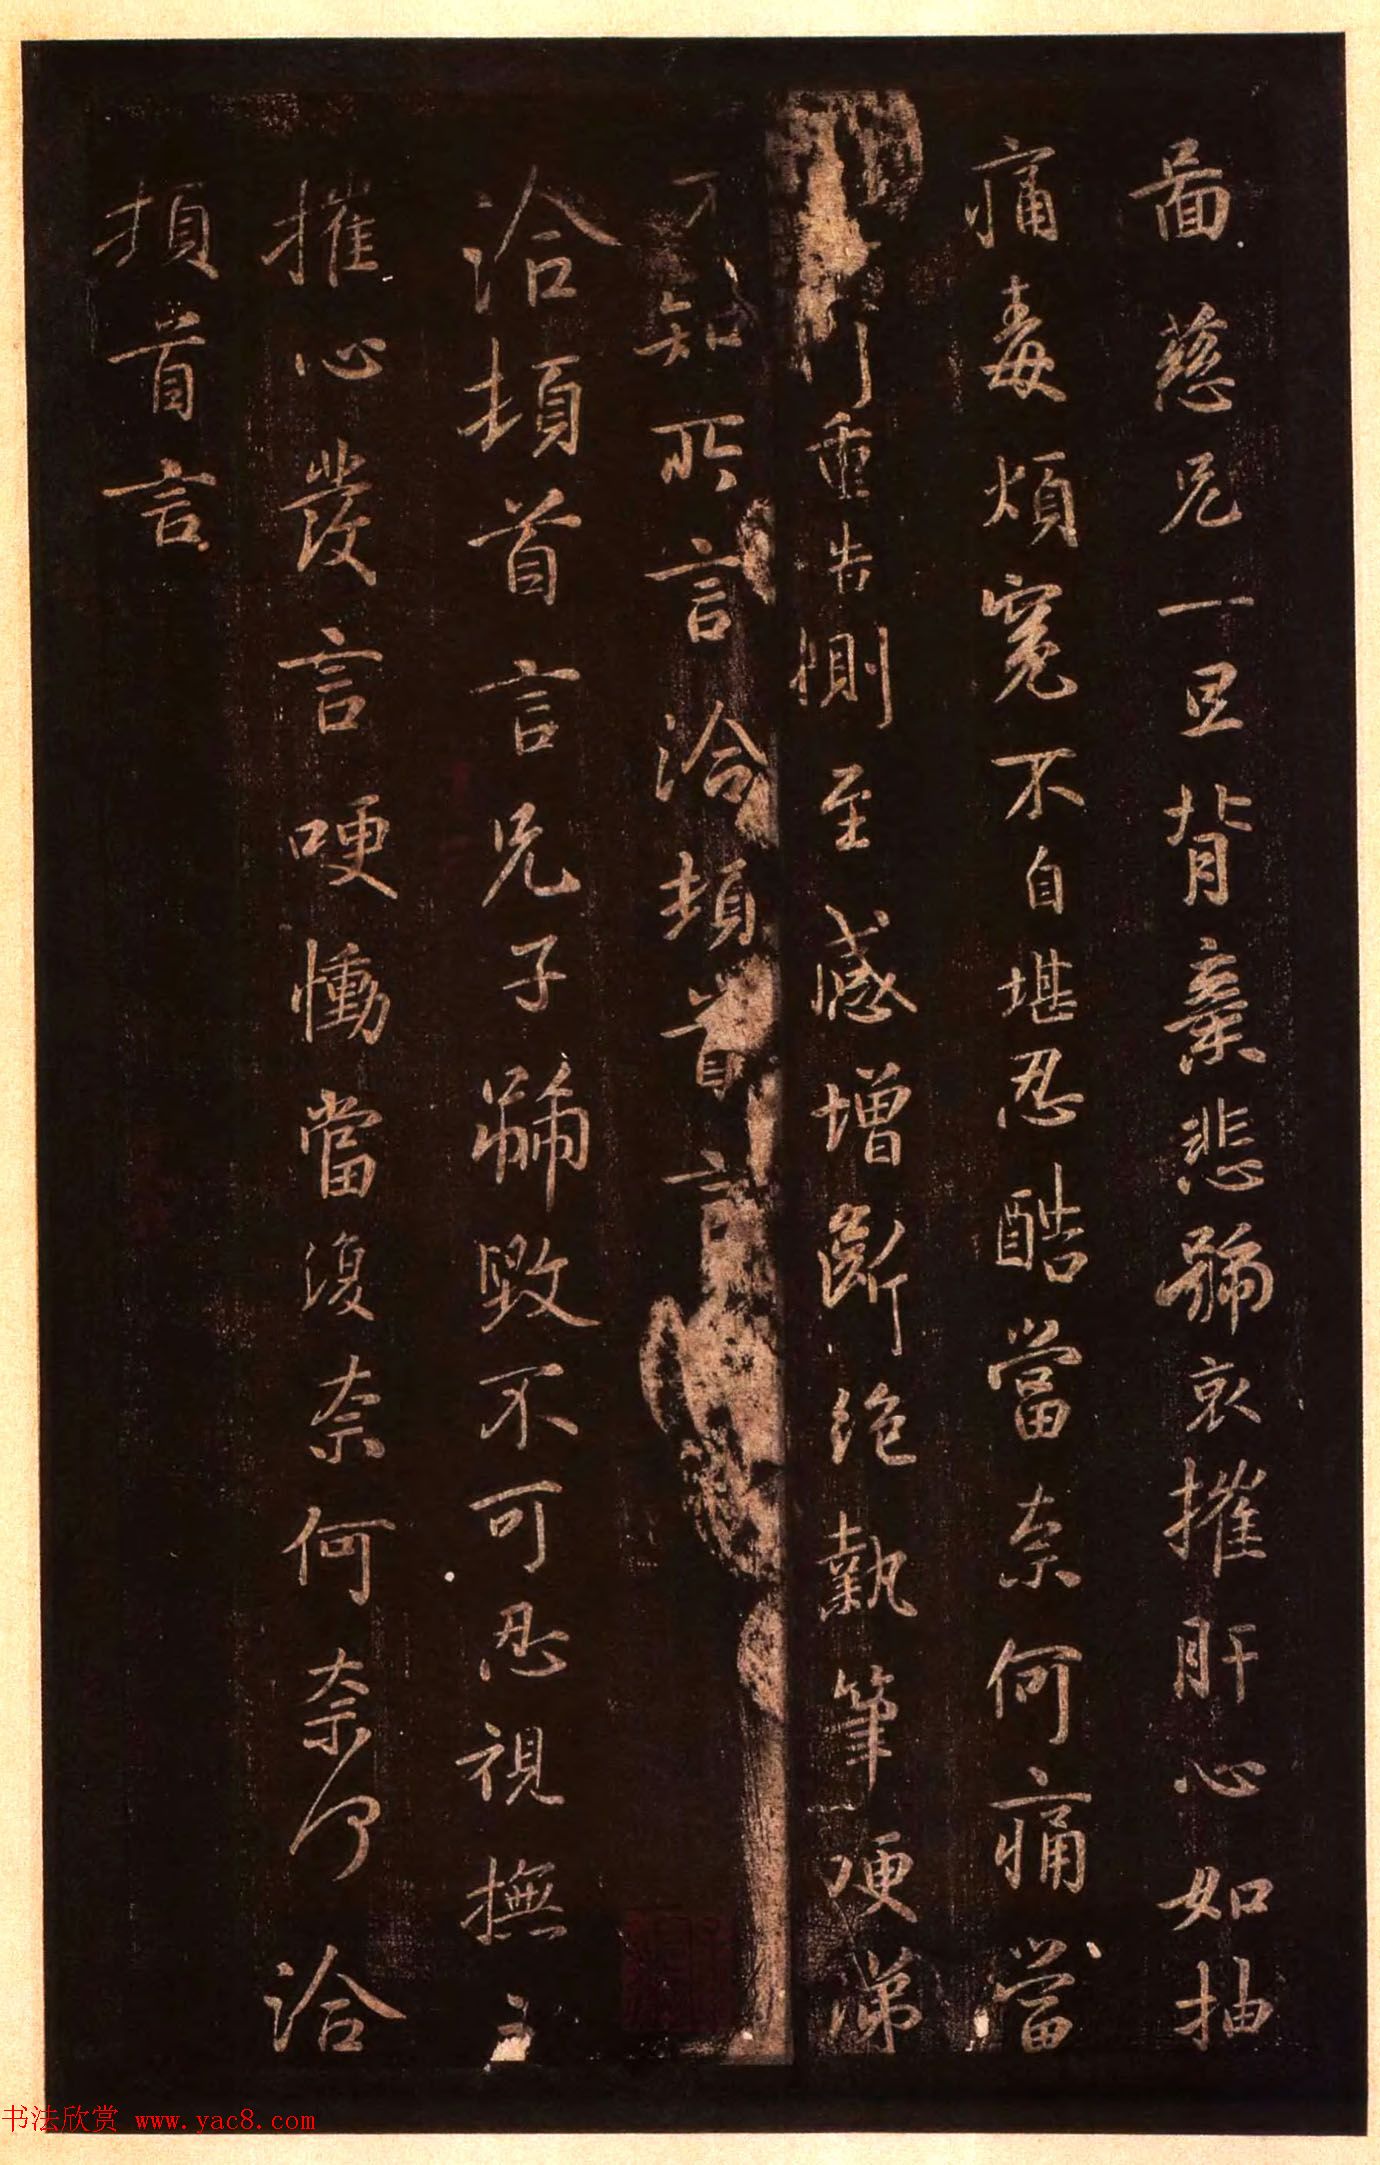 面慈兄一旦背棄悲號哀摧肝心如抽
痛毒煩冤不自堪忍酷當奈何痛當
重告惻至感增斷絕執筆哽涕
不知所言洽頓首言
洽頓首言兄子號毀不可忍視撫之
摧心發言哽慟當復奈何奈何洽
頓首言
书法欣赏 www.yac8.com